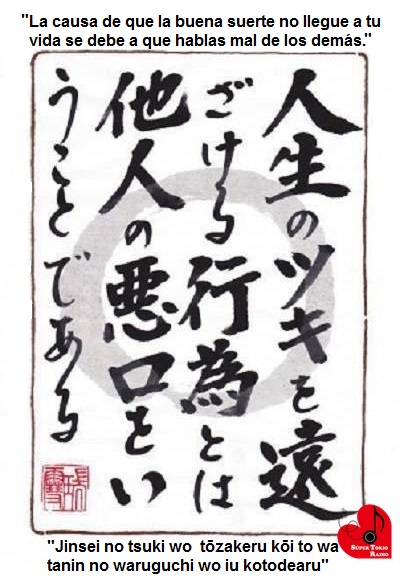 "La causa de que la buena suerte no llegue a tu
vida se debe a que hablas mal de los demás."
人生のツキを遠
ざける行為とは
他人の悪口をい
うことである
"Jinsei no tsuki wo tōzakeru kōi to wa
tanin no waruguchi wo iu kotodearu"
SUPER TOKIO
RADIO